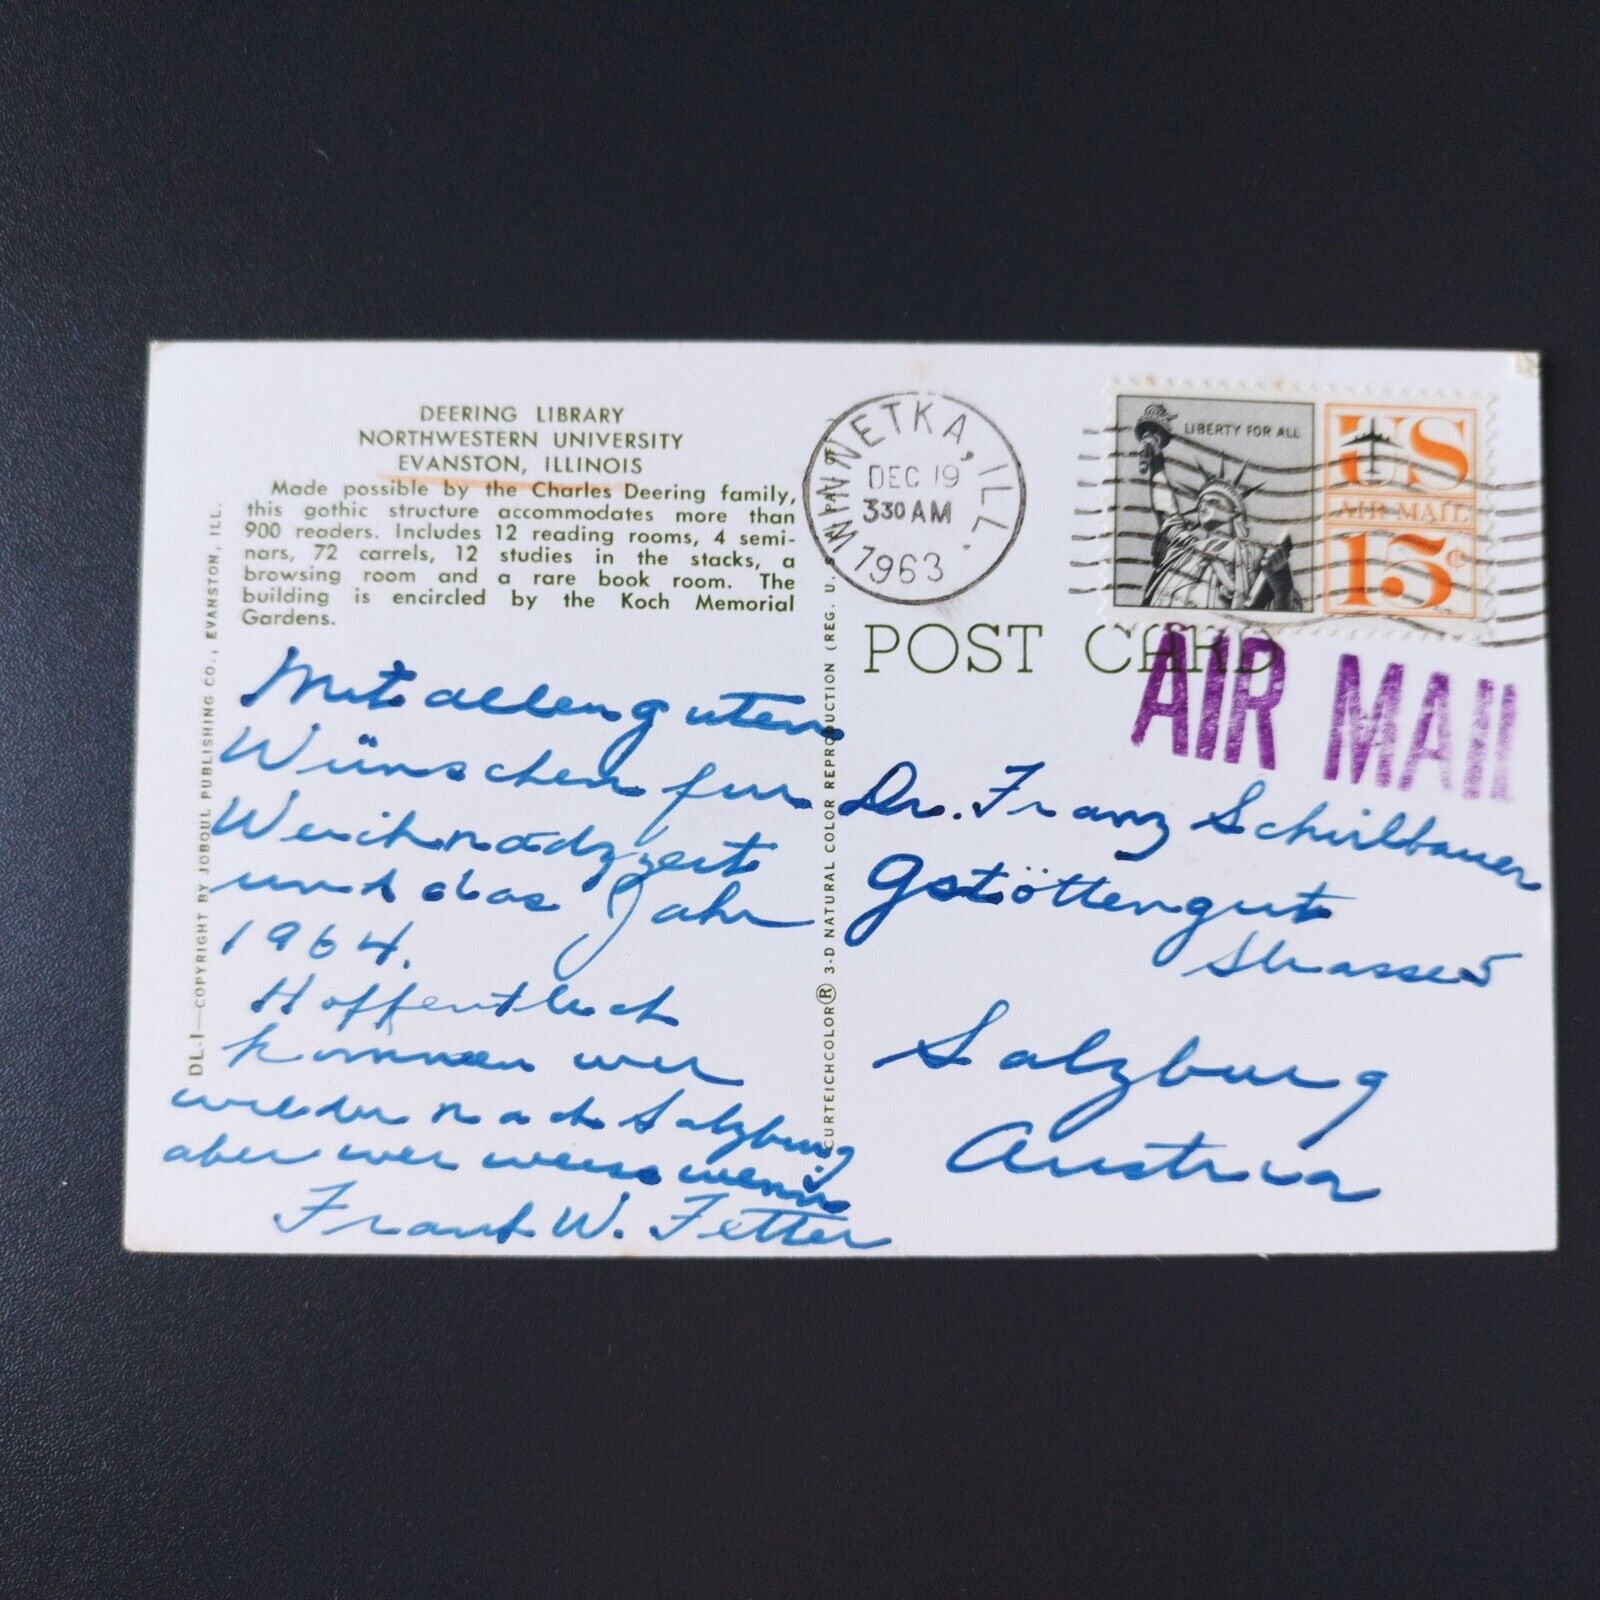 DEERING LIBRARY
NORTHWESTERN UNIVERSITY
EVANSTON, ILLINOIS
Made possible by the Charles Deering family,
this gothic structure accommodates more than
900 readers. Includes 12 reading rooms, 4 semi-
nars, 72 carrels, 12 studies in the stacks, a
browsing room and a rare book room. The
building is encircled by the Koch Memorial
Gardens.
DL.1—COPYRIGHT BY JOBOUL PUBLISHING CO., EVANSTON, ILL.
Mit allen guten
Wünschen fur
Weihnachtszeit
und das Jahr
1964.
Hoffentlich
kommen wir
wieder nach Salzburg
aber wer weiss wenn
Frank W. Fetter
CURTEICHCOLOR® 3-D NATURAL COLOR REPRODUCTION (REG. U. S. PAT. OFF.
WINNETKA, ILL.
DEC 19
330 AM
1963
LIBERTY FOR ALL
US
AIR MAIL
15¢
POST CARD
AIR MAIL
Dr. Franz Schirlbauer
Gstöttengut
Strasse 5
Salzburg
Austria